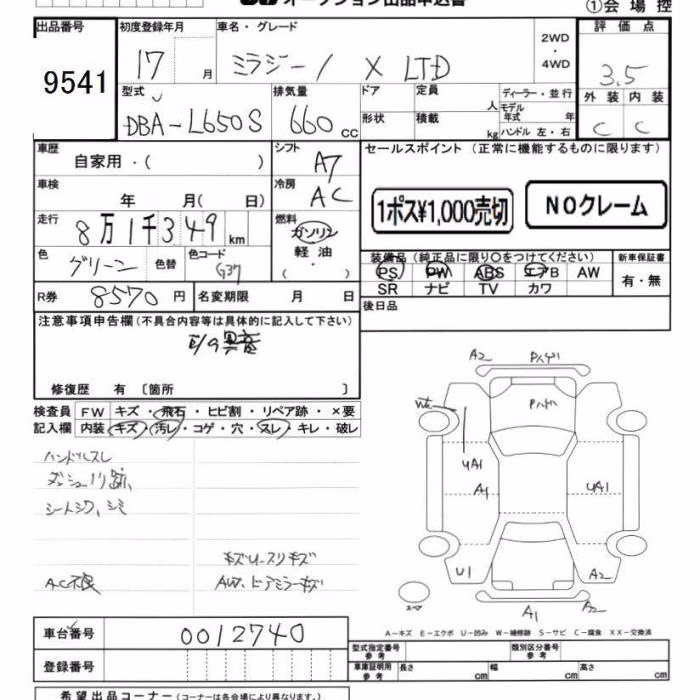 オークション出品申込書
①会場控
出品番号 初度登録年月 車名・グレード 評価点
9541 17 月 ミラジーノ X LTD 2WD ・ 4WD 3.5
外装 内装
C C
型式 排気量 ドア 定員 人 ディーラー・並行
DBA-L650S 660 cc 形状 積載 kg モデル年式 年
ハンドル 左・右
車歴 自家用・( ) シフト A7 セールスポイント (正常に機能するものに限ります)
車検 年 月( 日) 冷房 AC
1ポス¥1,000売切 NOクレーム
走行 8万1千349 km 燃料 ガソリン 軽油 ( ・ )
色 グリーン 色替 色コード G37
装備品 (純正品に限り○をつけてください) 新車保証書
PS PW ABS エアB AW 有・無
SR ナビ TV カワ
R券 8570 円 名変期限 月 日
後日品
注意事項申告欄 (不具合内容等は具体的に記入して下さい)
E/Gの異音
修復歴 有 〔箇所 〕
検査員 FW キズ・飛石・ヒビ割・リペア跡・×要
記入欄 内装 キズ・汚レ・コゲ・穴・スレ・キレ・破レ
ハンドルスレ
ダッシュノリ跡
シートシワ、シミ
キズUースリキズ
AC不良
AW.ドアミラーキズ
A2
UA1
A1
UA1
U1
A2
スペア
A1
A2
A-キズ E-エクボ U-凹み W-補修跡 S-サビ C-腐食 XX-交換済
車台番号 0012740
登録番号
型式指定番号 参考 類別区分番号 参考
車庫証明用 参考 長さ cm 幅 cm 高さ cm
希望出品コーナー (コーナーは各会場により異なります。)